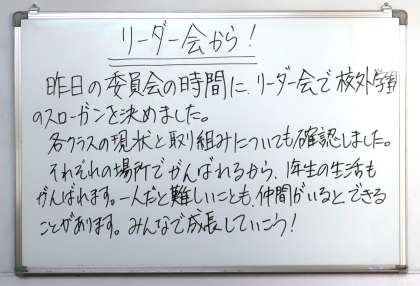 リーダー会から！
昨日の委員会の時間に、リーダー会で校外学習
のスローガンを決めました。
各クラスの現状と取り組みについても確認しました。
それぞれの場所でがんばれるから、1年生の生活も
がんばれます。一人だと難しいことも、仲間がいるとできる
ことがあります。みんなで成長していこう！